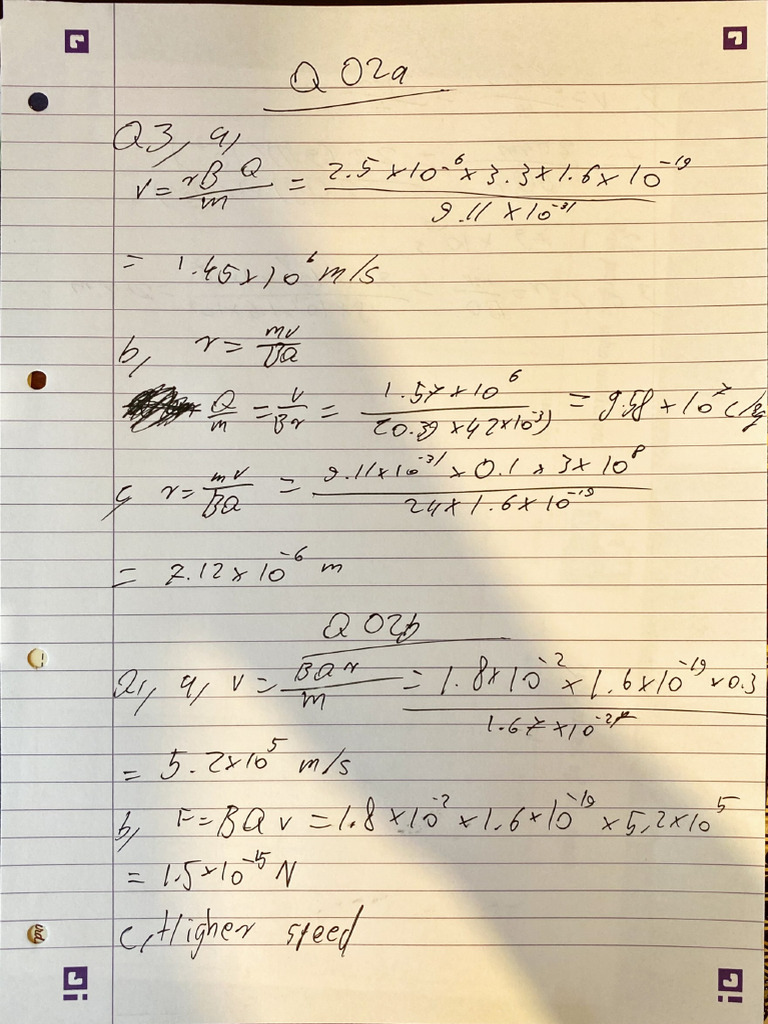 Q 02a
Q3, a,
v = rBQ/m = 2.5 × 10⁻⁶ × 3.3 × 1.6 × 10⁻¹⁹ / 9.11 × 10⁻³¹
= 1.45 × 10⁶ m/s
b, r = mv/BQ
Q/m = v/Br = 1.57 × 10⁶ / (0.39 × 42 × 10⁻³) = 9.58 × 10⁷ C/kg
c, r = mv/BQ = 9.11 × 10⁻³¹ × 0.1 × 3 × 10⁸ / 24 × 1.6 × 10⁻¹⁹
= 7.12 × 10⁻⁶ m
Q 02b
Q1, a, v = BQr/m = 1.8 × 10⁻² × 1.6 × 10⁻¹⁹ × 0.3 / 1.67 × 10⁻²⁷
= 5.2 × 10⁵ m/s
b, F = BQv = 1.8 × 10⁻² × 1.6 × 10⁻¹⁹ × 5.2 × 10⁵
= 1.5 × 10⁻¹⁵ N
c, Higher speed